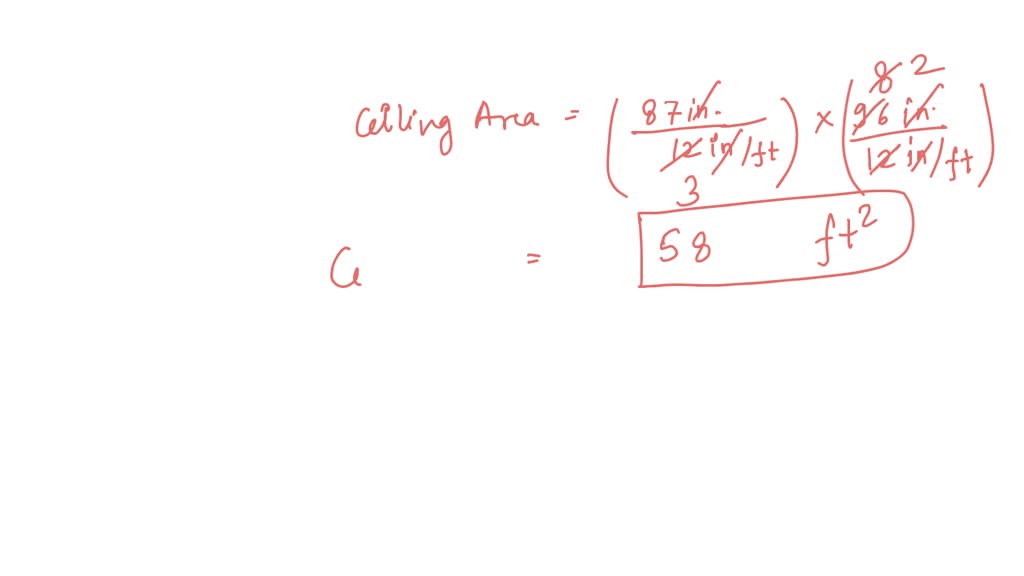 8 2
Ceiling Area = (87 in. / 12 in/ft) x (96 in. / 12 in/ft)
3
= 58 ft²